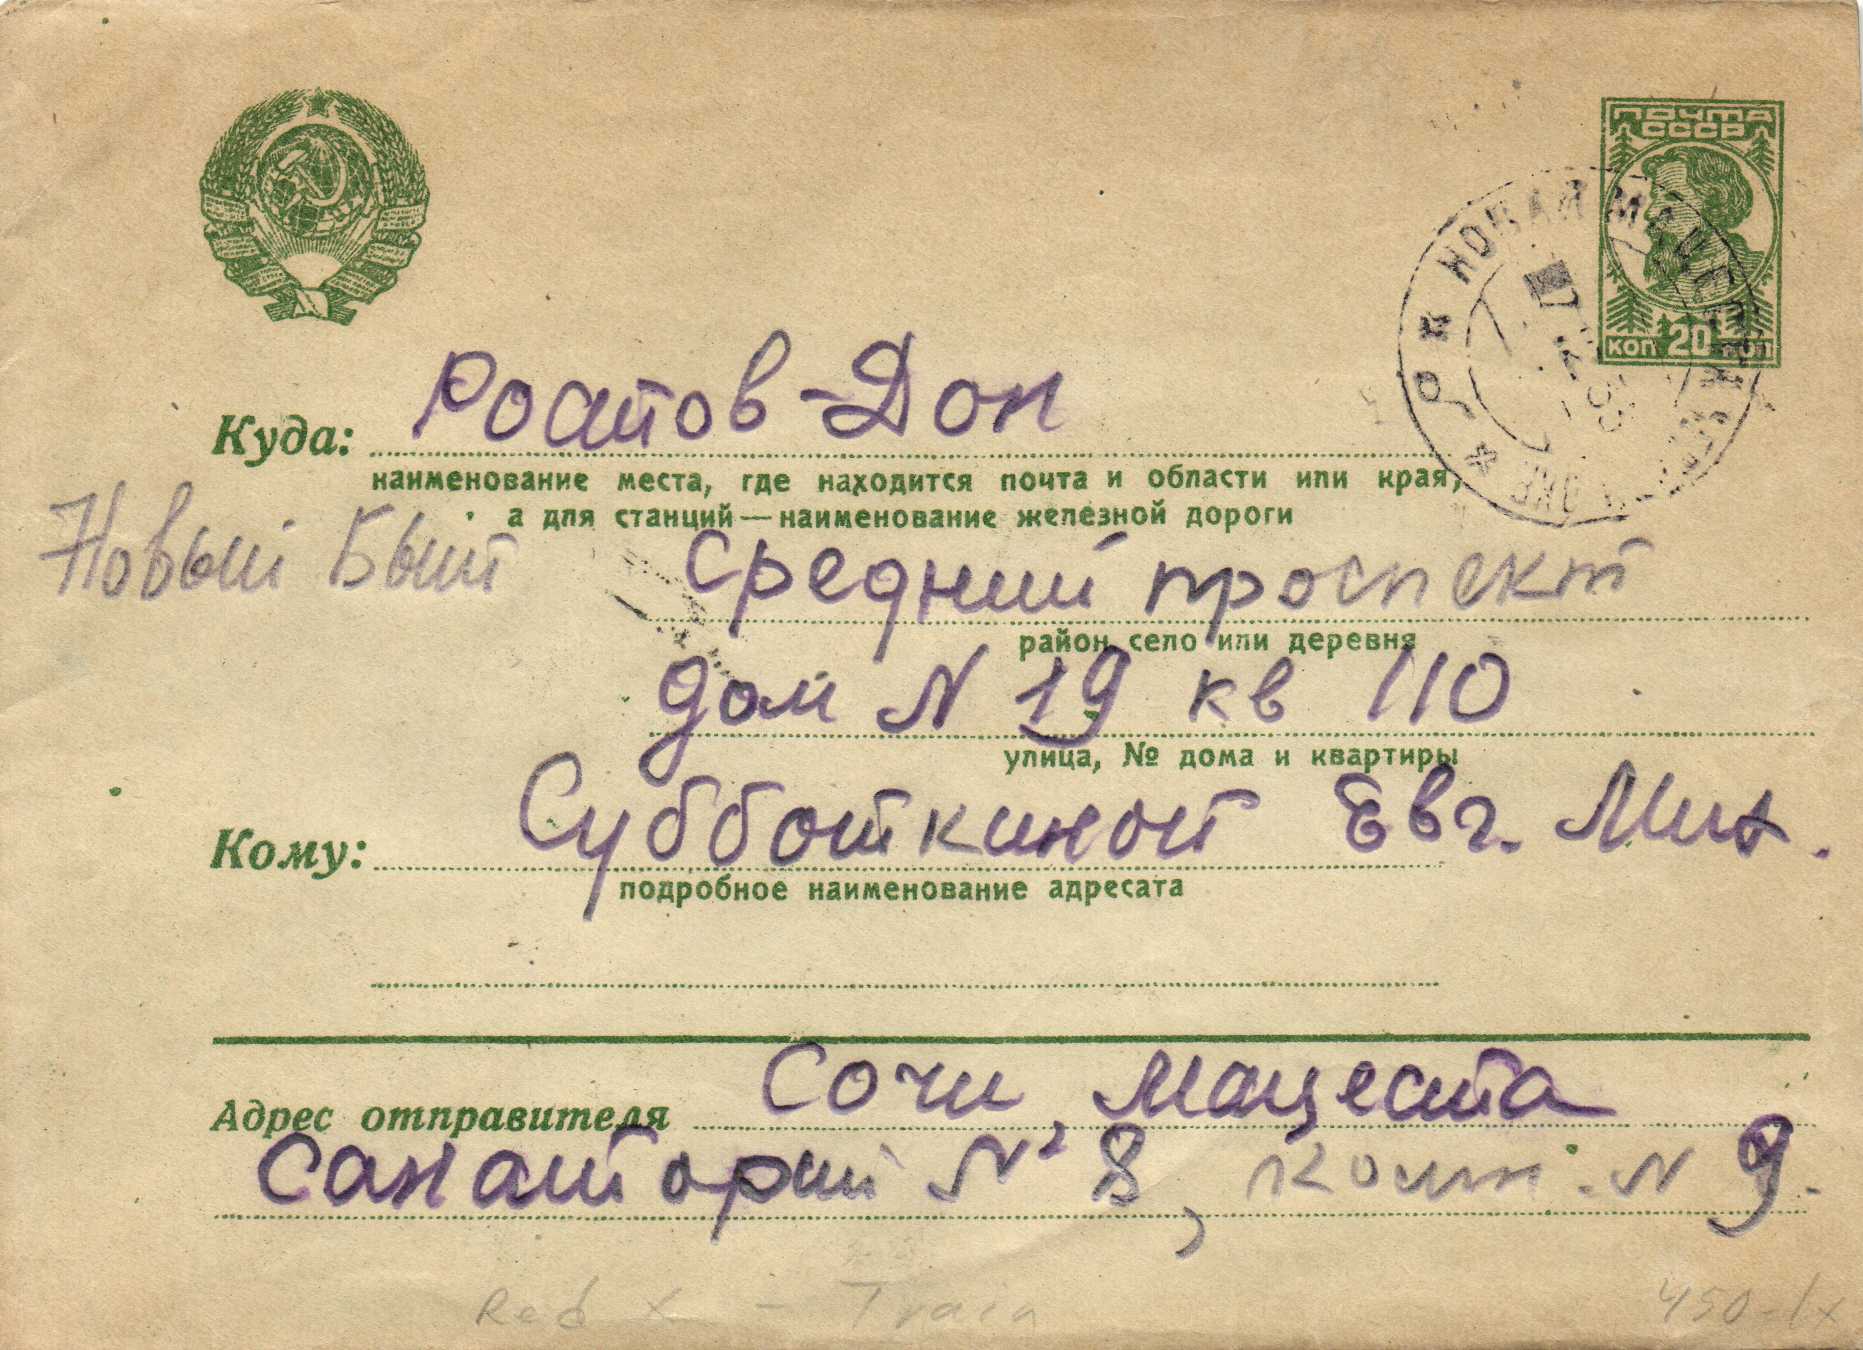 ПОЧТА
СССР
НОВАЯ МАЦЕСТА
КОП 20 КОП
Куда: Ростов-Дон
наименование места, где находится почта и области или края,
а для станций—наименование железной дороги
Новый Быт Средний проспект
район, село или деревня
дом N 19 кв 110
улица, № дома и квартиры
Кому: Субботкиной Евг. Мих.
подробное наименование адресата
Адрес отправителя Сочи, Мацеста
Санаторий N 8, комн. N 9.
Red X - Train 450-1x